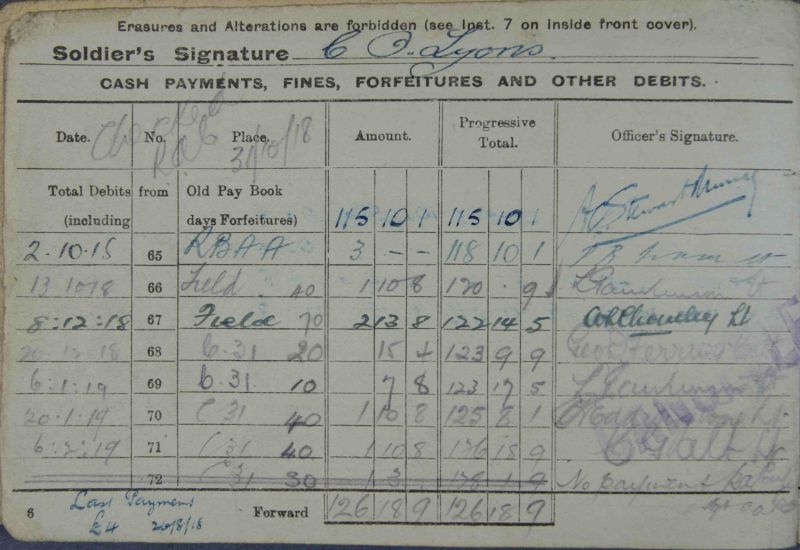 Erasures and Alterations are forbidden (see Inst. 7 on inside front cover).
Soldier's Signature C O. Lyons.
CASH PAYMENTS, FINES, FORFEITURES AND OTHER DEBITS.
Date. No. Place. Amount. Progressive Total. Officer's Signature.
31/10/18
Total Debits from Old Pay Book
(including days Forfeitures) 115 10 1 115 10 1
2.10.18 65 3 - - 118 10 1
13 10 18 66 Field 40 1 10 8 120 . 9
8:12:18 67 Field 70 2 13 8 122 14 5 Lt
20 12 18 68 C.31 20 15 4 123 9 9
6:1:19 69 C.31 10 7 8 123 17 5
20.1.19 70 C 31 40 1 10 8 125 8 1
6:2:19 71 C 31 40 1 10 8 126 18 9
72 C 31 30 1 3 128 1 9 No payment
6 Last Payment Forward 126 18 9 126 18 9
£4 20/8/18